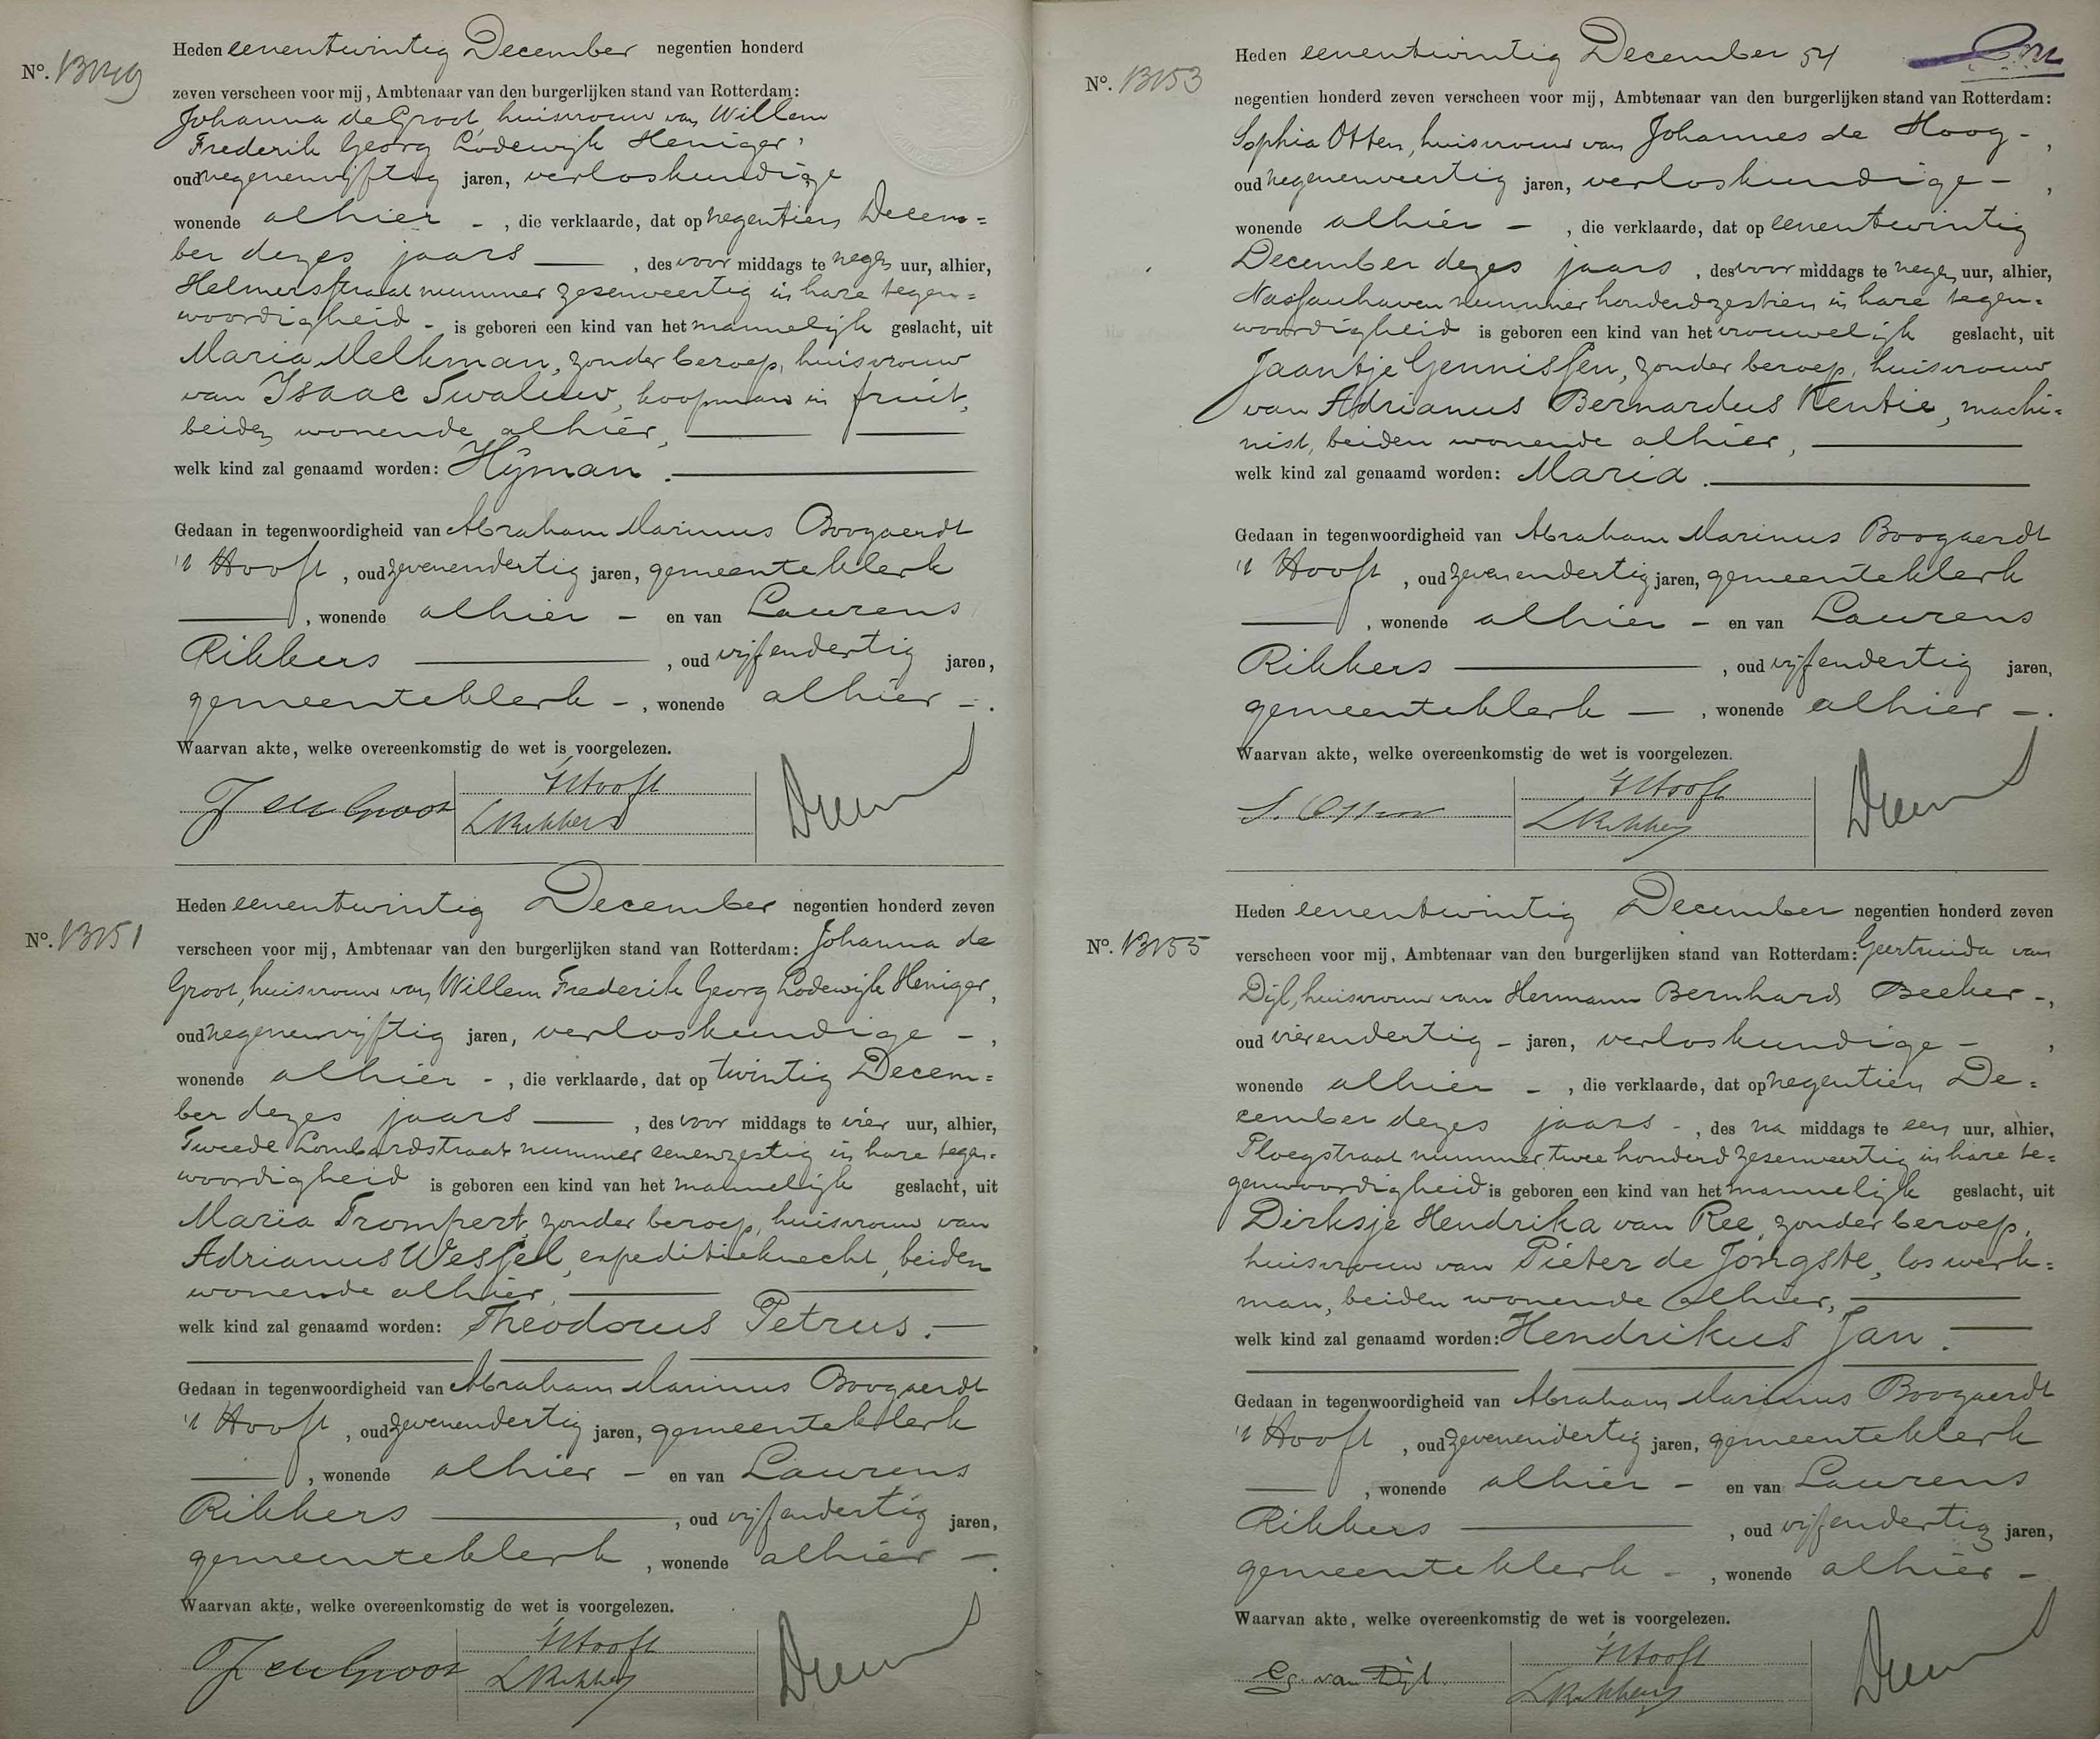 Heden eenentwintig December negentien honderd
No. 13149
zeven verscheen voor mij, Ambtenaar van den burgerlijken stand van Rotterdam:
Johanna de Groot, huisvrouw van Willem
Frederik Georg Lodewijk Heniger,
oud negenenvijftig jaren, verloskundige
wonende alhier -, die verklaarde, dat op negentien Decem=
ber dezes jaars —, des voor middags te negen uur, alhier,
Helmersstraat nummer zesenveertig in hare tegen=
woordigheid - is geboren een kind van het mannelijk geslacht, uit
Maria Melkman, zonder beroep, huisvrouw
van Isaac Swaluw, koopman in fruit,
beiden wonende alhier, —
welk kind zal genaamd worden: Hijman. —
Gedaan in tegenwoordigheid van Abraham Marinus Boogaerdt
't Hooft, oud zevenendertig jaren, gemeenteklerk
—, wonende alhier - en van Laurens
Rikkers —, oud vijfendertig jaren,
gemeenteklerk -, wonende alhier -.
Waarvan akte, welke overeenkomstig de wet is voorgelezen.
J de Groot
't Hooft
L Rikkers
Heden eenentwintig December negentien honderd zeven
No. 13151
verscheen voor mij, Ambtenaar van den burgerlijken stand van Rotterdam: Johanna de
Groot, huisvrouw van Willem Frederik Georg Lodewijk Heniger,
oud negenenvijftig jaren, verloskundige -,
wonende alhier -, die verklaarde, dat op twintig Decem=
ber dezes jaars —, des voor middags te vier uur, alhier,
Tweede Lombardstraat nummer eenenzestig in hare tegen=
woordigheid is geboren een kind van het mannelijk geslacht, uit
Maria Trompert, zonder beroep, huisvrouw van
Adrianus Wessel, expeditieknecht, beiden
wonende alhier, —
welk kind zal genaamd worden: Theodorus Petrus. —
Gedaan in tegenwoordigheid van Abraham Marinus Boogaerdt
't Hooft, oud zevenendertig jaren, gemeenteklerk
—, wonende alhier - en van Laurens
Rikkers —, oud vijfendertig jaren,
gemeenteklerk, wonende alhier -.
Waarvan akte, welke overeenkomstig de wet is voorgelezen.
J de Groot
't Hooft
L Rikkers
Heden eenentwintig December 54
No. 13153
negentien honderd zeven verscheen voor mij, Ambtenaar van den burgerlijken stand van Rotterdam:
Sophia Otten, huisvrouw van Johannes de Hoog -,
oud negenenveertig jaren, verloskundige -,
wonende alhier -, die verklaarde, dat op eenentwintig
December dezes jaars, des voor middags te negen uur, alhier,
Nassauhaven nummer honderdzestien in hare tegen=
woordigheid is geboren een kind van het vrouwelijk geslacht, uit
Jaantje Gennissen, zonder beroep, huisvrouw
van Adrianus Bernardus Kentie, machi=
nist, beiden wonende alhier, —
welk kind zal genaamd worden: Maria. —
Gedaan in tegenwoordigheid van Abraham Marinus Boogaerdt
't Hooft, oud zevenendertig jaren, gemeenteklerk
—, wonende alhier - en van Laurens
Rikkers —, oud vijfendertig jaren,
gemeenteklerk —, wonende alhier -.
Waarvan akte, welke overeenkomstig de wet is voorgelezen.
S. Otten
't Hooft
L Rikkers
Heden eenentwintig December negentien honderd zeven
No. 13155
verscheen voor mij, Ambtenaar van den burgerlijken stand van Rotterdam: Geertruida van
Dijl, huisvrouw van Hermann Bernhard Becker -,
oud vierendertig - jaren, verloskundige -,
wonende alhier -, die verklaarde, dat op negentien De=
cember dezes jaars -, des na middags te een uur, alhier,
Ploegstraat nummer twee honderd zesenveertig in hare te=
genwoordigheid is geboren een kind van het mannelijk geslacht, uit
Dirksje Hendrika van Ree, zonder beroep,
huisvrouw van Pieter de Jongste, los werk=
man, beiden wonende alhier, —
welk kind zal genaamd worden: Hendrikus Jan. —
Gedaan in tegenwoordigheid van Abraham Marinus Boogaerdt
't Hooft, oud zevenendertig jaren, gemeenteklerk
—, wonende alhier - en van Laurens
Rikkers —, oud vijfendertig jaren,
gemeenteklerk -, wonende alhier -
Waarvan akte, welke overeenkomstig de wet is voorgelezen.
G. van Dijl
't Hooft
L Rikkers